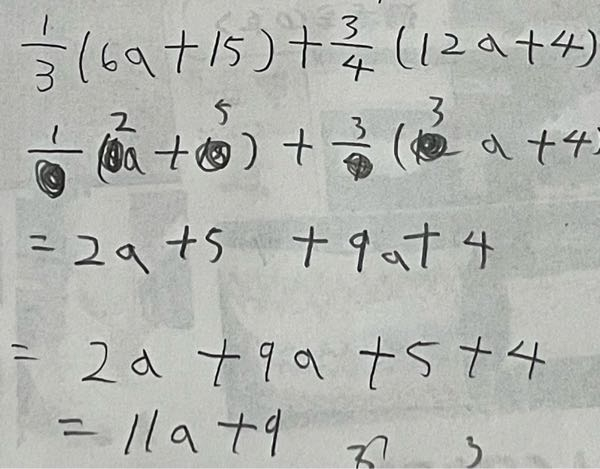 1/3 (6a+15) + 3/4 (12a+4)
1/ (2a + 5) + 3/ (3 a + 4)
= 2a + 5 + 9a + 4
= 2a + 9a + 5 + 4
= 11a + 9
3